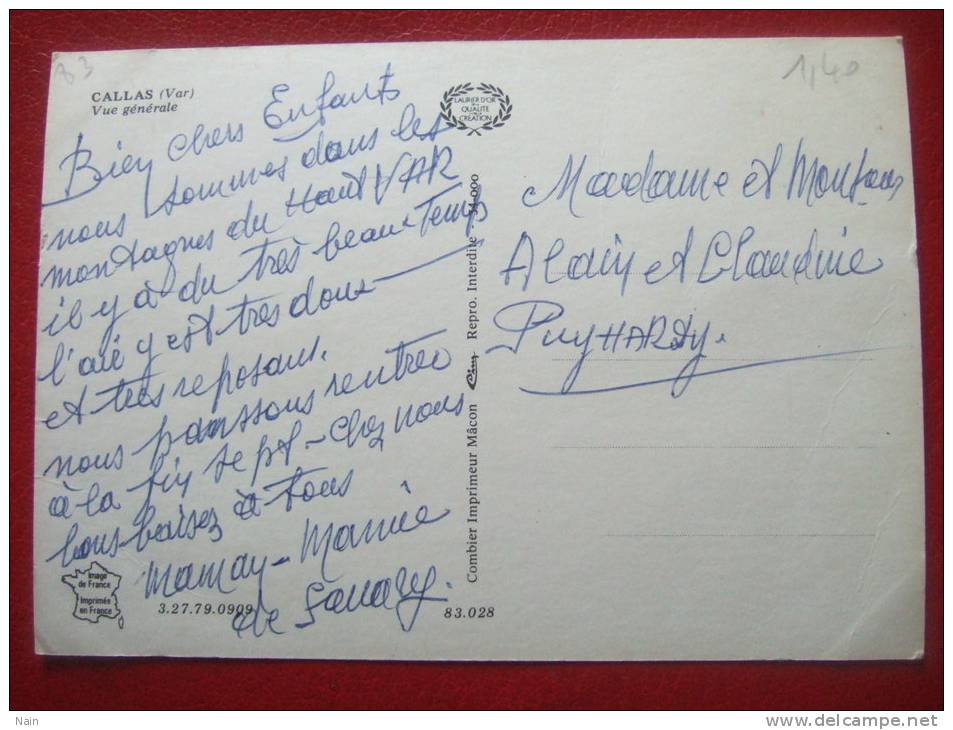 83
1,40
CALLAS (Var)
Vue générale
LAURIER D'OR
QUALITE
CREATION
Bien chers Enfants
nous sommes dans les
montagnes du Haut VAR
il y à du très beau Temps
l'air y est tres doux
et tres reposant.
nous panssons rentrer
à la fin sept - chez nous
bons baisez à tous
Maman - Mamie
de Sanary.
Madame et Monsieur
Alain et Claudine
PuyHARDY.
Combier Imprimeur Mâcon Repro. Interdite - 34.000
Image
de France
Imprimée
en France
3.27.79.0909
83.028
Nain
www.delcampe.net